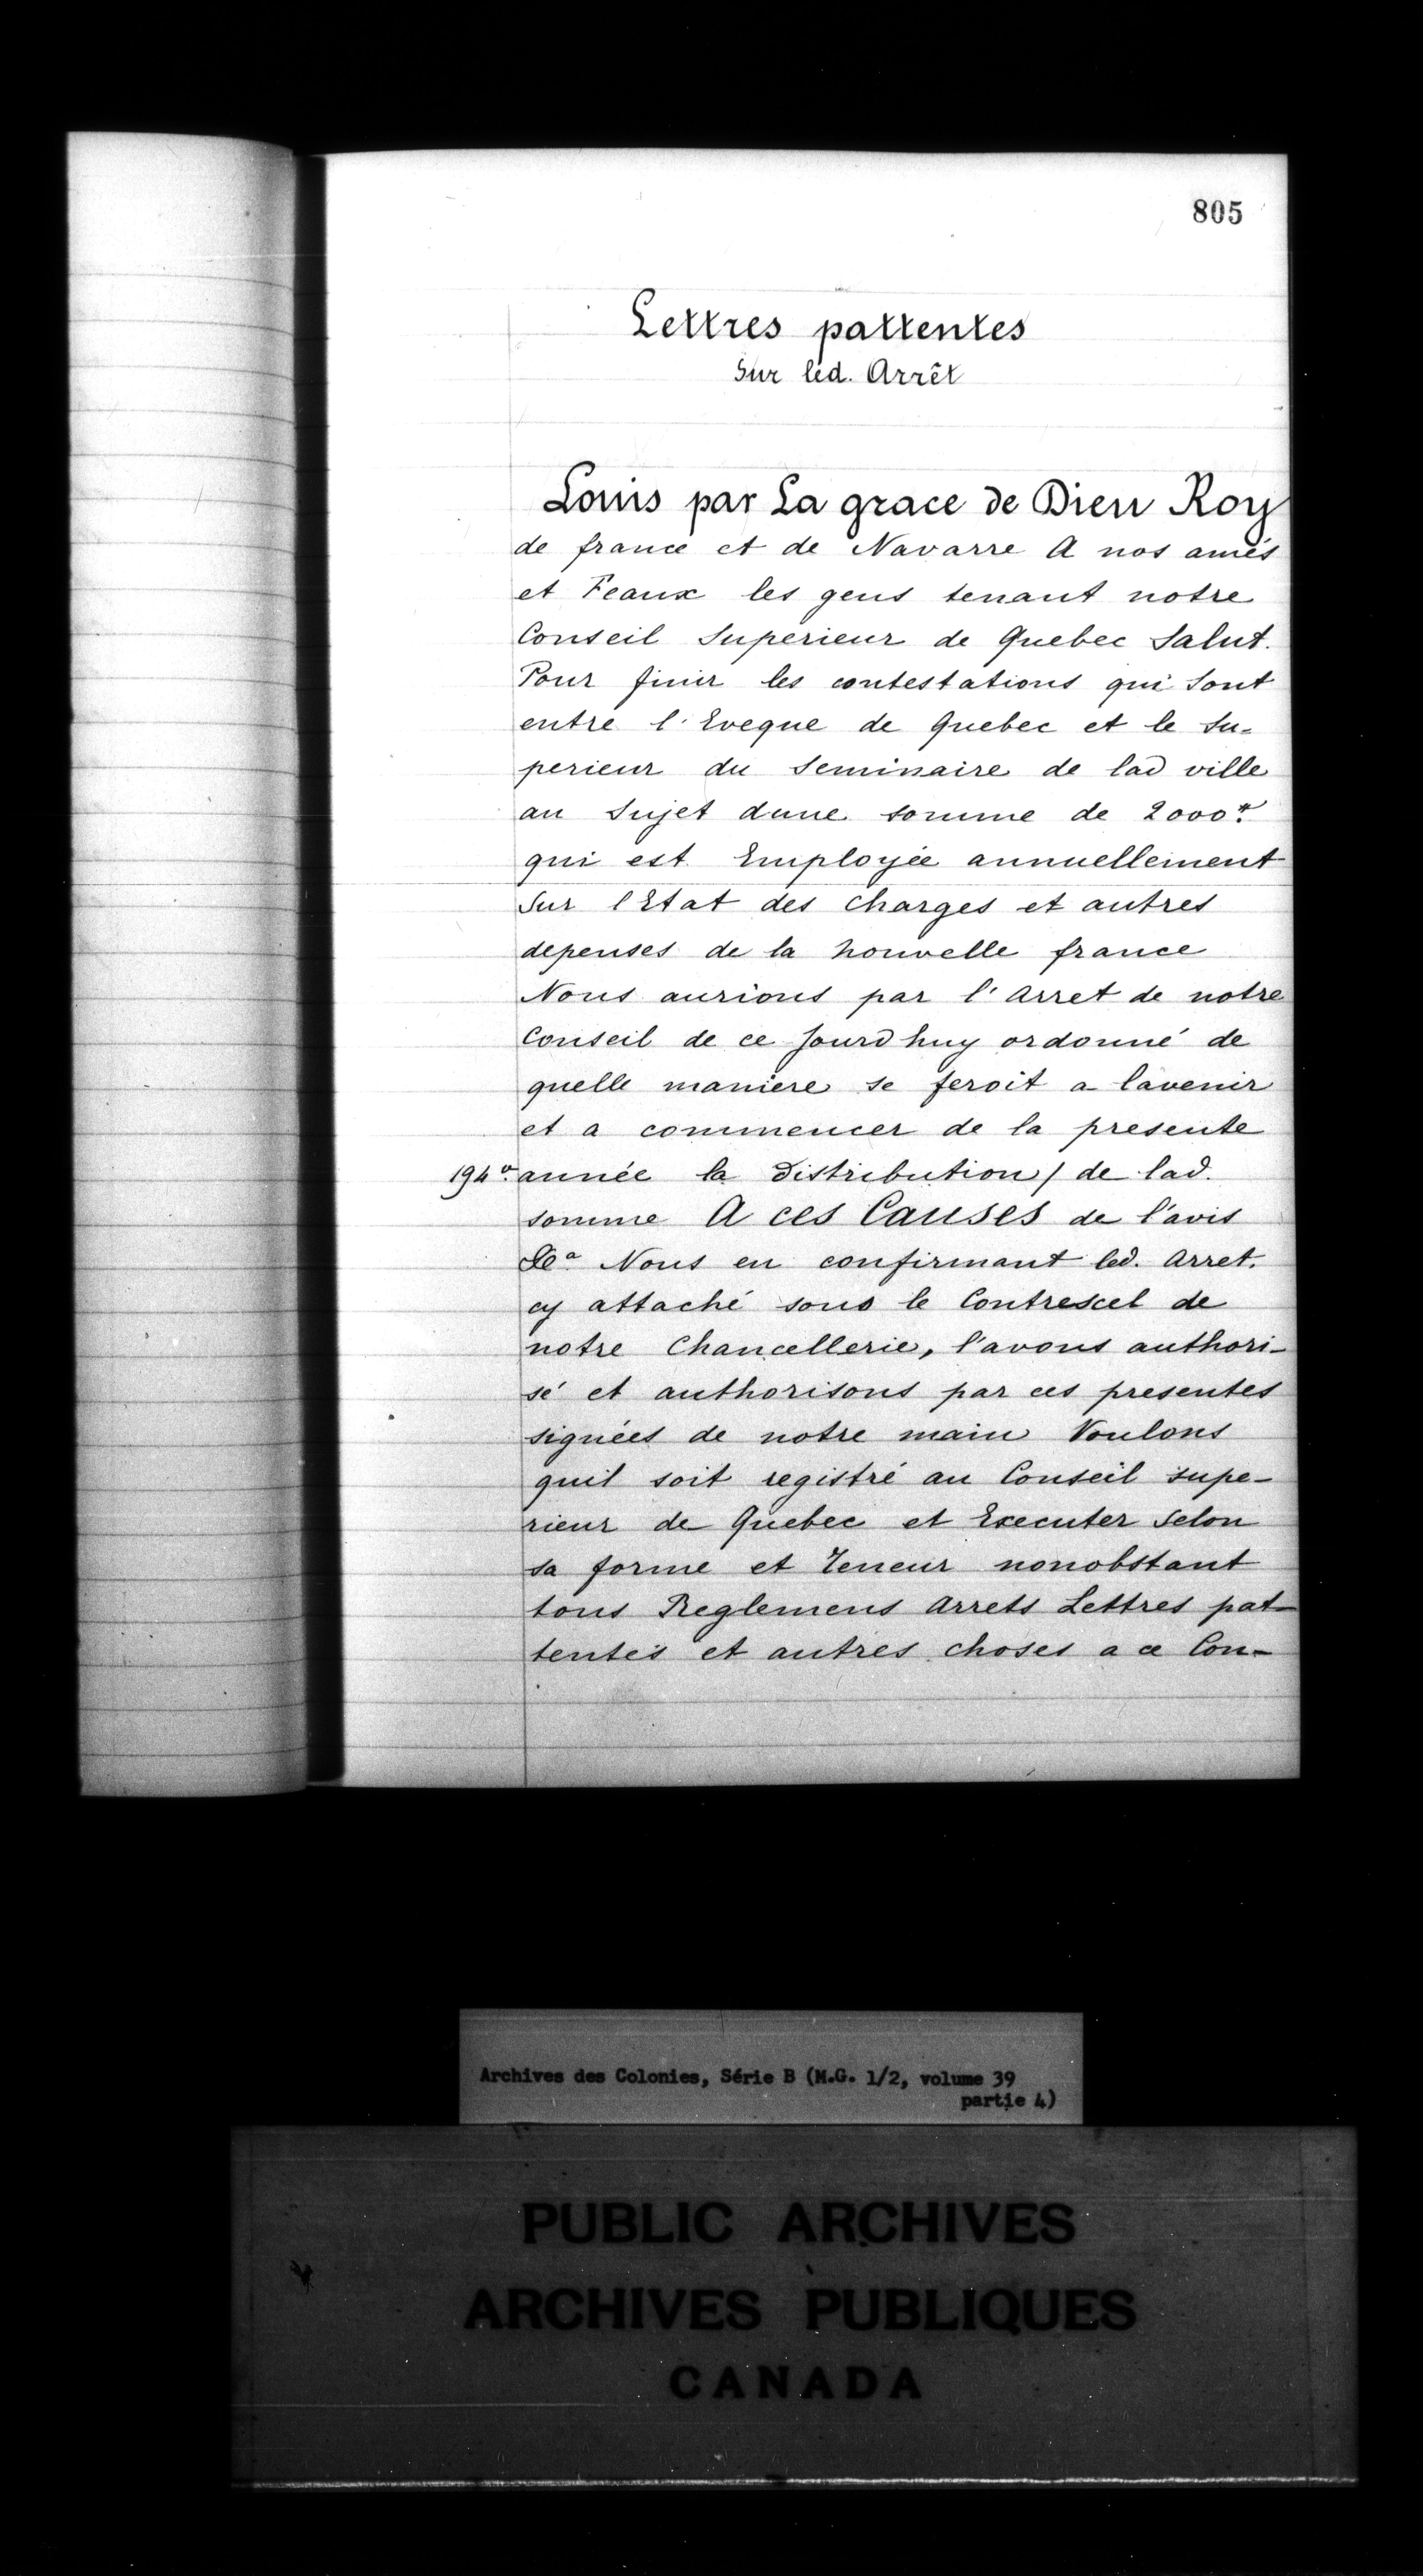 805
Lettres pattentes
Sur led. Arrêt
Louis par La grace de Dieu Roy
de france et de Navarre A nos amés
et Feaux les gens tenant notre
Conseil Superieur de Quebec Salut.
Pour finir les contestations qui Sont
entre l'Eveque de Quebec et le Su-
perieur du Seminaire de lad ville
au Sujet dune somme de 2000₶
qui est Employée annuellement
Sur l'Etat des Charges et autres
depenses de la Nouvelle france
Nous aurions par l'Arret de notre
Conseil de ce Jourdhuy ordonné de
quelle maniere se feroit a lavenir
et a commencer de la presente
194vo. année la Distribution / de lad.
somme A ces Causes de l'avis
&a. Nous en confirmant led. Arret.
cy attaché sous le Contrescel de
notre Chancellerie, l'avons authori-
sé et authorisons par ces presentes
signées de notre main Voulons
quil soit registré au Conseil supe-
rieur de Quebec et Executer Selon
sa forme et Teneur nonobstant
tous Reglemens Arrets Lettres pat-
tentes et autres choses a ce Con-
Archives des Colonies, Série B (M.G. 1/2, volume 39
partie 4)
PUBLIC ARCHIVES
ARCHIVES PUBLIQUES
CANADA